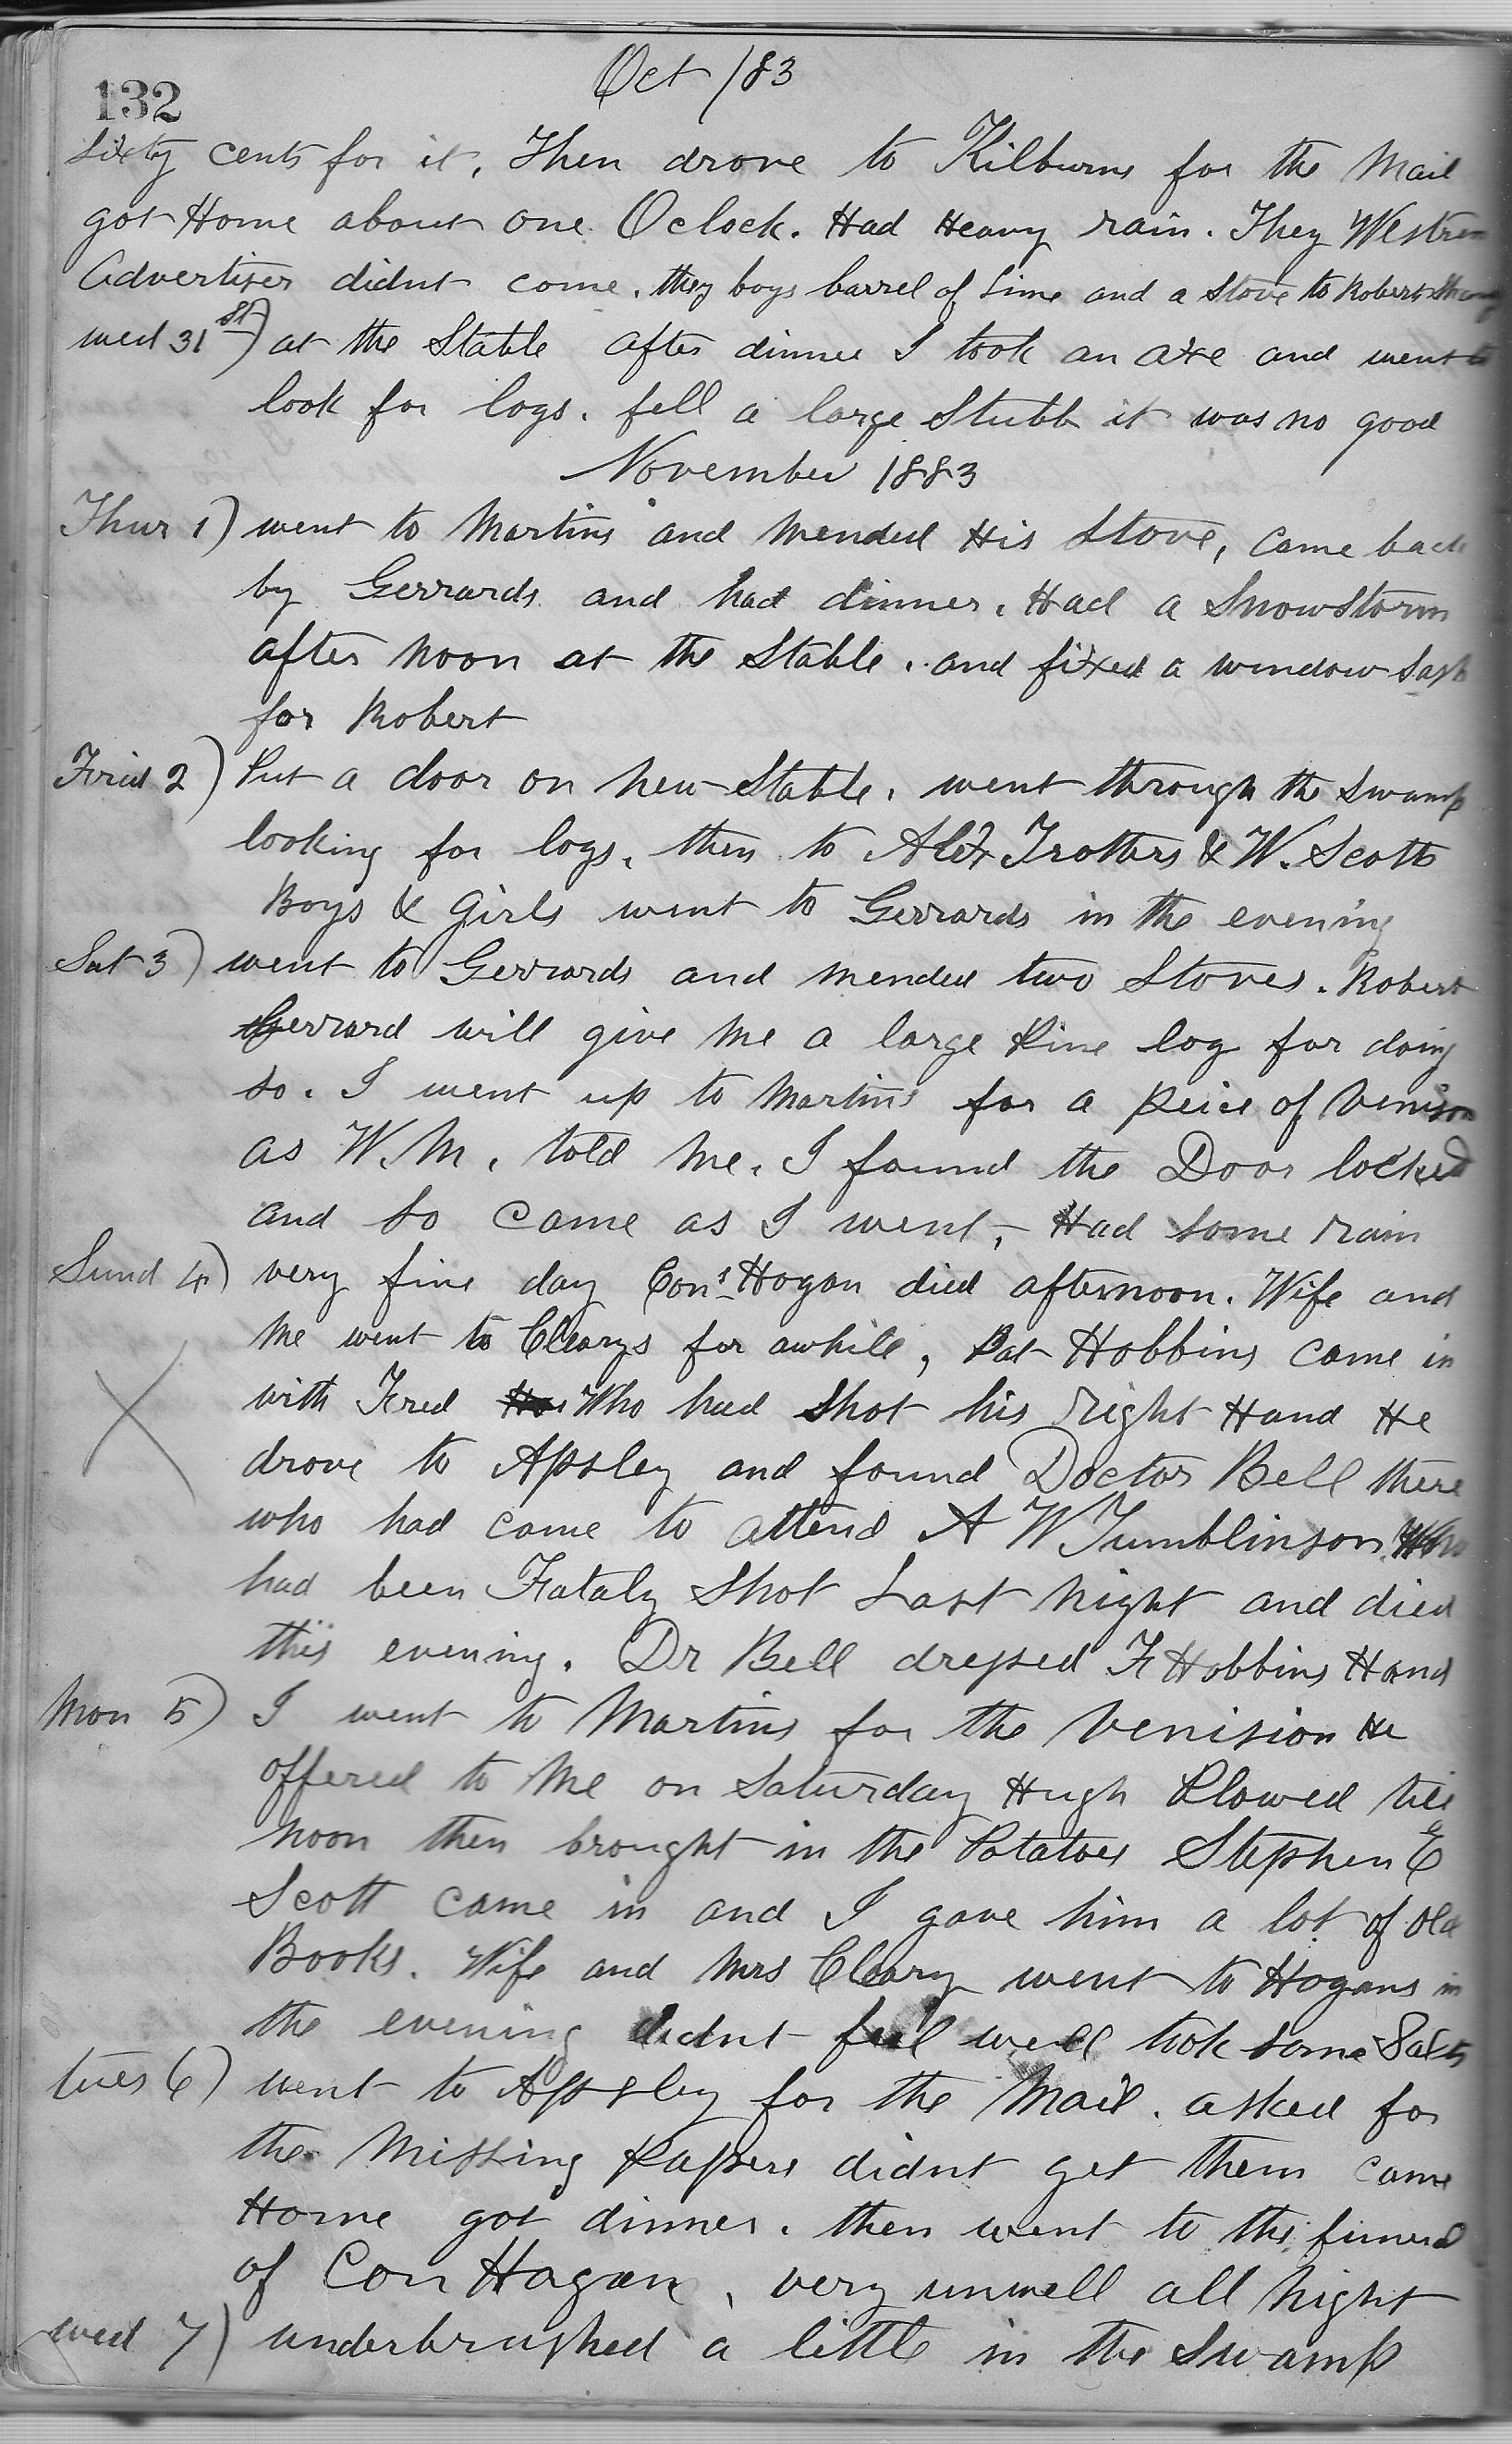 132
Oct /83
Sixty cents for it, Then drove to Kilburns for the Mail
got Home about one Oclock. Had Heavy rain. They Westren
Advertiser didnt come. they boys barrel of Lime and a Stove to Robert
wed 31st) at the Stable after dinner I took an axe and went to
look for logs. fell a large Stubb it was no good
November 1883
Thur 1) went to Martins and Mended His Stove, came back
by Gerrards and had dinner. Had a Snowstorm
after noon at the Stable. and fixed a window Sash
for Robert
Frid 2) Put a door on new Stable. went through the Swamp
looking for logs. then to Alex Trotters & W. Scotts
Boys & Girls went to Gerrards in the evening
Sat 3) went to Gerrards and mended two Stoves. Robert
Gerrard will give me a large Pine log for doing
so. I went up to Martins for a peice of Venison
as W. M. told me. I found the Door locked
and so came as I went, Had some rain
Sund 4) very fine day Cons Hogan died afternoon. Wife and
Me went to Clearys for awhile, Pat Hobbins came in
with Fred Who had Shot his right Hand He
drove to Apsley and found Doctor Bell there
who had come to attend A W Tumblinson Who
had been Fataly Shot Last night and died
this evening. Dr Bell dressed F Hobbins Hand
Mon 5) I went to Martins for the Venision He
offered to Me on Saturday Hugh Plowed till
noon then brought in the Potatoes Stephen E
Scott came in and I gave him a lot of old
Books. Wife and Mrs Cleary went to Hogans in
the evening didnt feel well took some Salts
tues 6) went to Apsley for the Mail. asked for
the Missing Papers didnt get them came
Home got dinner. then went to the funeral
of Con Hogan, very unwell all night
wed 7) underbrushed a little in the Swamp